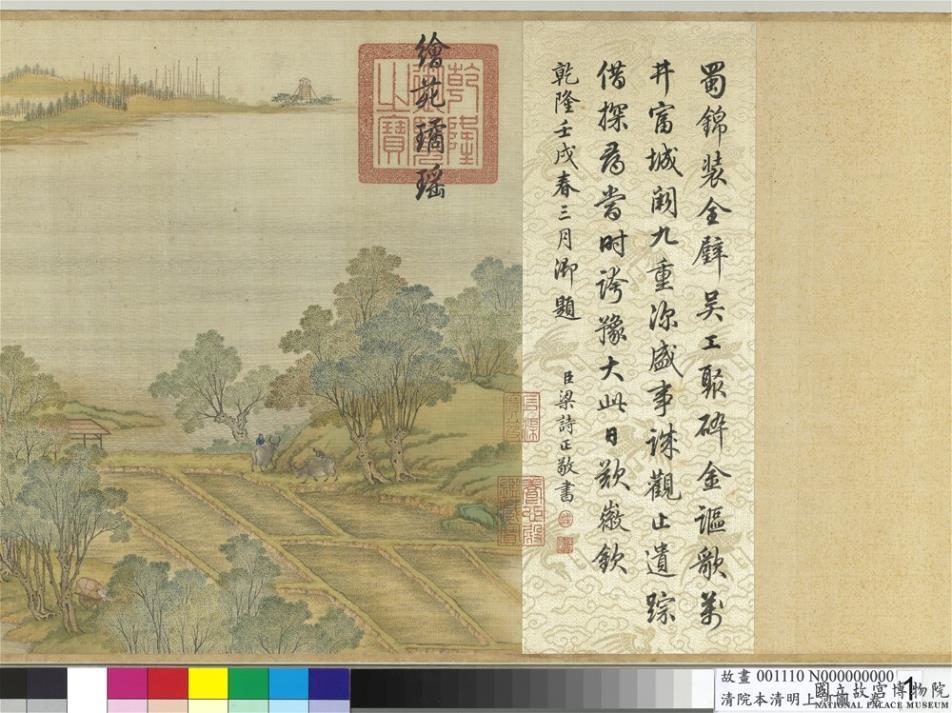 蜀錦装全璧吴工聚碎金謳歌萬
井富城闕九重深盛事誅觀止遺踪
借探尋當時誇豫大此日歎徽欽
乾隆壬戌春三月御題
臣梁詩正敬書
繪苑璚瑶
乾隆
之寶
故畫 001110 N000000000
清院本清明上河圖 卷
1
國立故宮博物院
NATIONAL PALACE MUSEUM